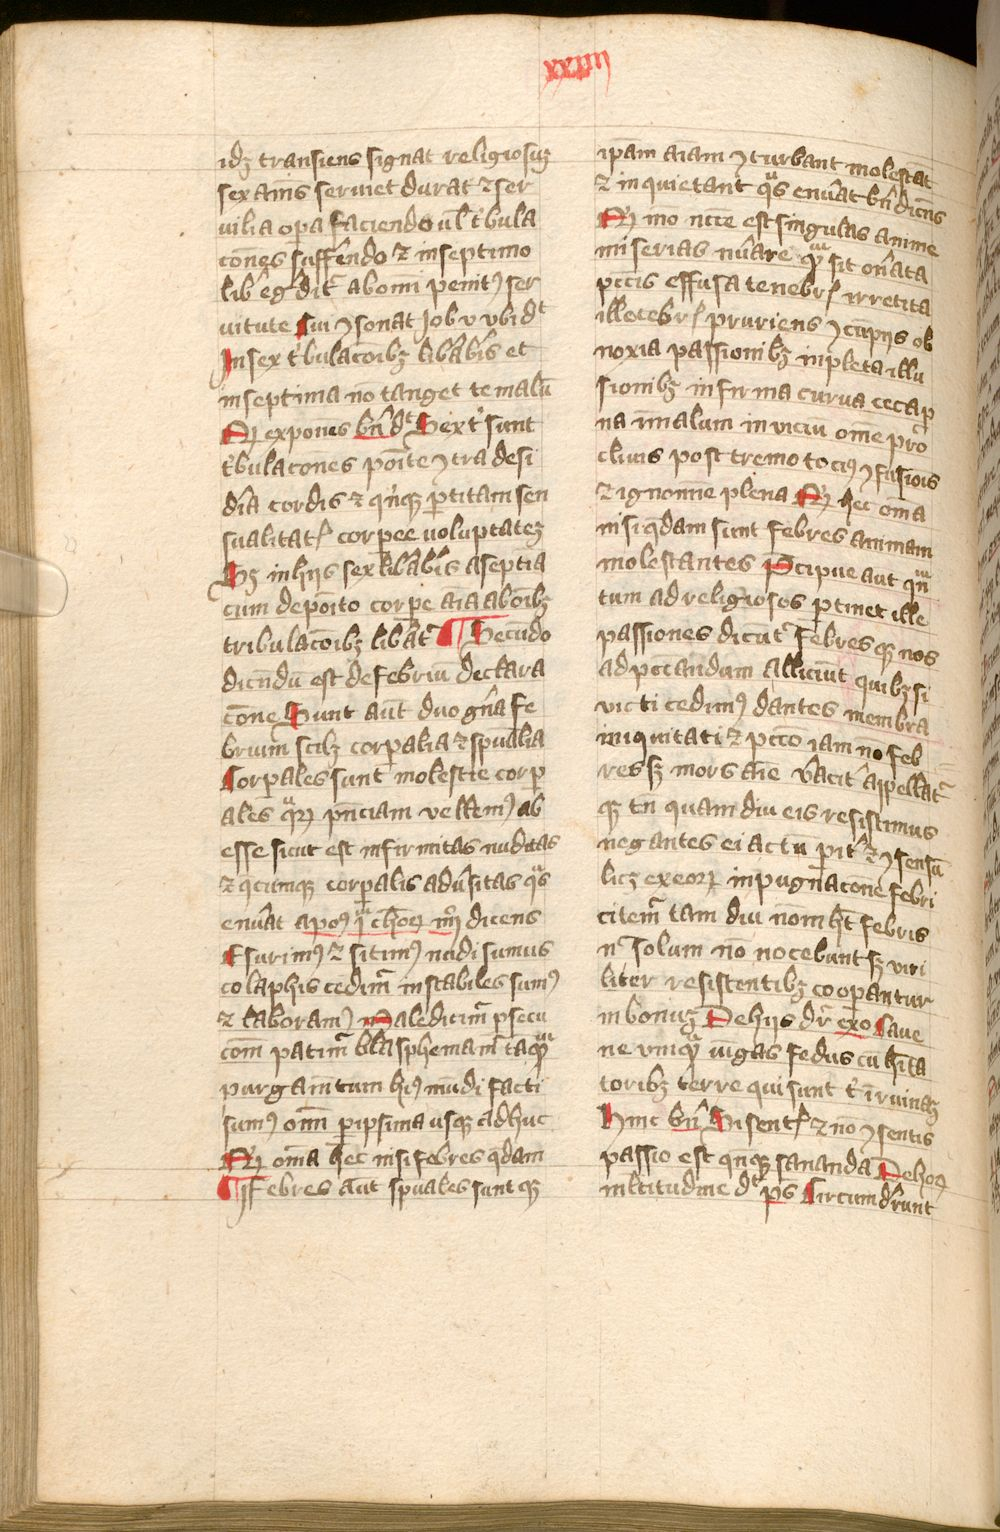 xxiiii
idꝫ transiens signat religiosuꝫ
sex am̄s seruiet durat ⁊ ser
uilia oꝑa faciendo ul̄ t'bula
cōnes suffe̅ndo ⁊ in septimo
lib' eg̅dit᷑ ab om̄i penitꝰ ser
uitute Cui ꝯsonat Job v vbi dt
In sex t'bulacōibꝫ lib'ab'is et
in septima nō tanget te malū
Qꝫ exponēs bn̄ dt Sex t' sunt
t'bulacōnes pōite ꝯtra desi
dīa cordis ⁊ qn̄qꝫ ꝑtitam sen
sualitatꝭ corꝑee uoluptateꝫ
Sꝫ in hijs sex lib'ab'is a septīa
cum depōito corꝑe aīa ab oībꝫ
tribulacōibꝫ lib'at᷑ ¶ Secūdo
dicn̄dū est de febriū declara
cōne Sunt aūt duo gn̄a fe
brium scilꝫ corꝑalia ⁊ spūalia
Corꝑales sunt molestie corꝑ
ales qᷓꝝ pn̄ciam vellemꝰ ab
esse sicut est infirmitas nuditas
⁊ qcumqꝫ corꝑalis adūsitas qᷓs
enūat apoꝰ dicens
Esurimꝰ ⁊ sitimꝰ nudi sumus
colaphis cedim᷑ instabiles sumꝰ
⁊ laboramꝰ Maledicim᷑ ꝑsecu
com̄ patim᷑ blasphemam᷑ taqᷓꝫ
purgam̄tum hꝰ mūdi facti
sumꝰ om̄ ꝑipsima usqꝫ adhuc
Qꝫ om̄a hec in si febres qdam
¶ Febres aūt spūales sunt qꝫ
ip̄am aīam ꝯturbant molestāt
⁊ inquietant qᷓs enūat bn̄ dicēns
Qꝫ mō ncc̄e est singulas anime
miserias nūare qᷓꝫ sit on̄ata
pcc̄is effusa tenebrꝭ irretita
illecebrꝭ pruriens ꝯcūpijs ob
noxia passionibꝫ inpleta illu
sionibꝫ infirma curua ceca ꝓ
na in malum in viciū om̄e pro
cliuis postremo tociꝰ ꝯfusiōis
⁊ ignom̄ie plena Qꝫ hec om̄a
in si qdam sunt febres animam
molestantes Pcipue aut qn̄
tum ad religiosos ꝑtinet ille
passiones dicūt᷑ febres qꝫ nos
ad pccandum alliciūt quibꝫ si
victi cedimꝰ dantes membra
iniquitati ⁊ pcc̄o iam nō feb
res sꝫ mors aīe v'acit' appellat᷑
qꝫ tn̄ quam diu eis resistimus
negantes ei actū ꝑit' ⁊ ꝯsensū
licꝫ ex eoꝝ inpugnacōne febri
citem᷑ tam diu nom̄ hꝫt febris
⁊ solum nō nocebunt sꝫ viri
liter resistentibꝫ cooꝑantur
in bonuꝫ De hijs dr̄ exo Caue
ne vmqᷓꝫ iūgas fedus cū h'ita
toribꝫ terre qui sunt t' in ruinaꝫ
Hinc bn̄ Si sentꝭ ⁊ nō ꝯsentis
passio est qn̄qꝫ sananda De hoꝝ
mltitudine dt ps Circumd'runt